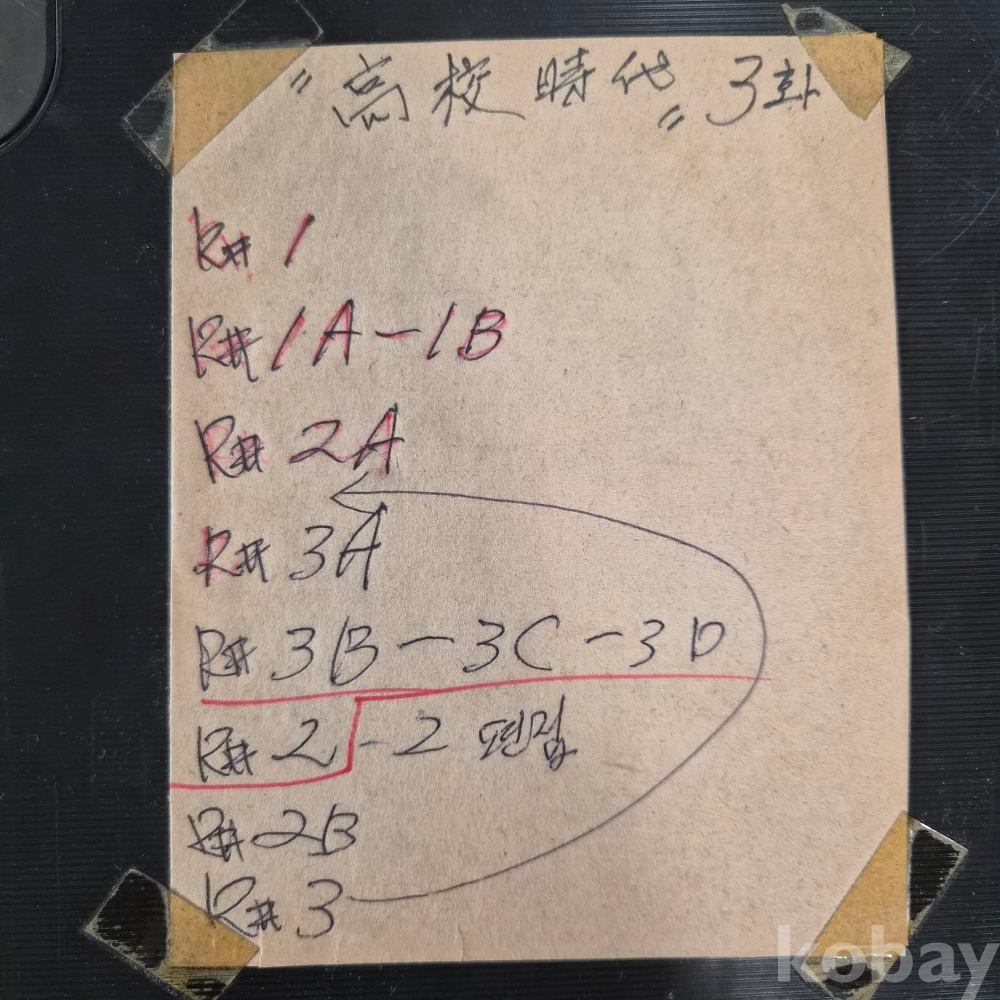 "高校時代" 3화
R# 1
R# 1A-1B
R# 2A
R# 3A
R# 3B-3C-3D
R# 2-2 편집
R# 2B
R# 3
kobay